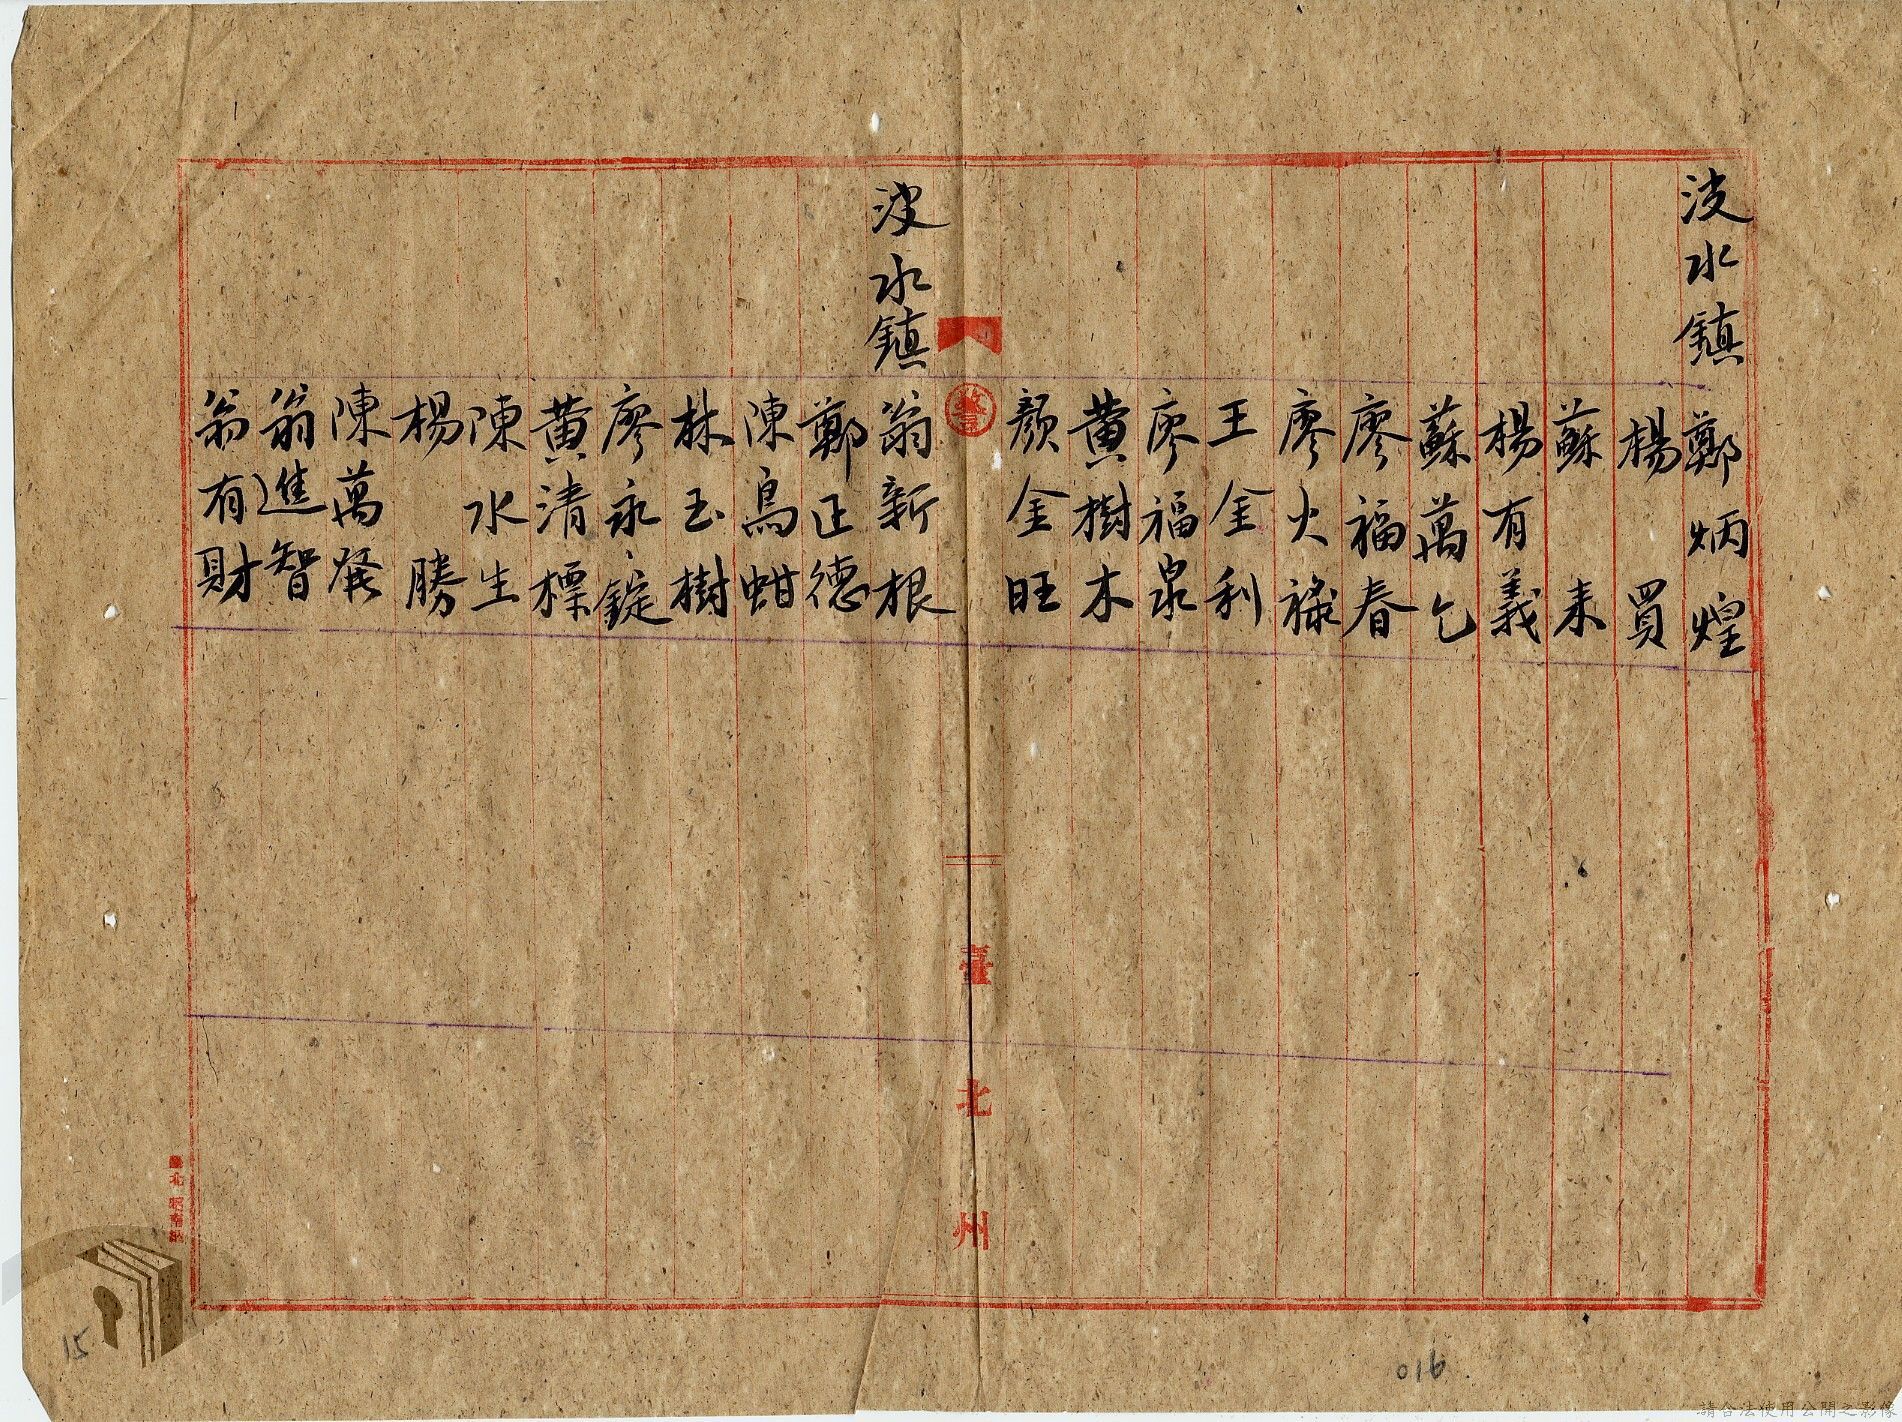 淡水鎮 鄭炳煌
楊買
蘇来
楊有義
蘇萬乞
廖福春
廖火祿
王金利
廖福泉
黄樹木
顏金旺
警
臺北州
淡水鎮 翁新根
鄭正德
陳鳥蚶
林玉樹
廖永錠
黄清標
陳水生
楊勝
陳萬發
翁進智
翁有財
15
016
請合法使用公開之影像